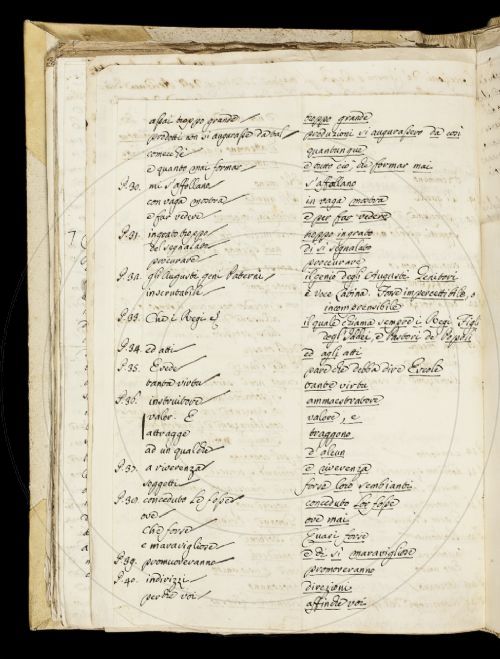 assai troppo grande troppo grande
prodotti non si augurasse da tal produzioni si augurassero da così
comecchè quantunque
e quanto mai formar e tutto ciò, che formar mai
P. 30. mi s'affollano s'affollano
con vaga mostra in vaga mostra
e far vedere e per far vedere
P. 31. ingrato troppo troppo ingrato
del segnalato di sì segnalato
procurare proccurare
P. 32. gli Augusti geni Paterni il genio degli Augusti Genitori
inscrutabile è voce latina. Forse impercettibile, o
incomprensibile
P. 33. Che i Regi il quale chiama sempre i Regi Figli
degli Iddei, e Pastori de' Popoli
P. 34. ed atti ed agli atti
P. 35. Erede pare che debba dire Ercole
tanta virtù tante virtù
P. 36. institutore ammaestratore
valor. E valore, e
attragge traggono
ad un qualche d'alcun
P. 37. a riverenza e riverenza
soggetti forse loro sembianti
P. 38. conceduto le fosse conceduto lor fosse
ove ove mai
Che forse Quasi forse
e maravigliose e di sì maravigliose
P. 39. promuoveranno promoveranno
P. 40. indirizzi direzioni
perchè voi affinchè voi